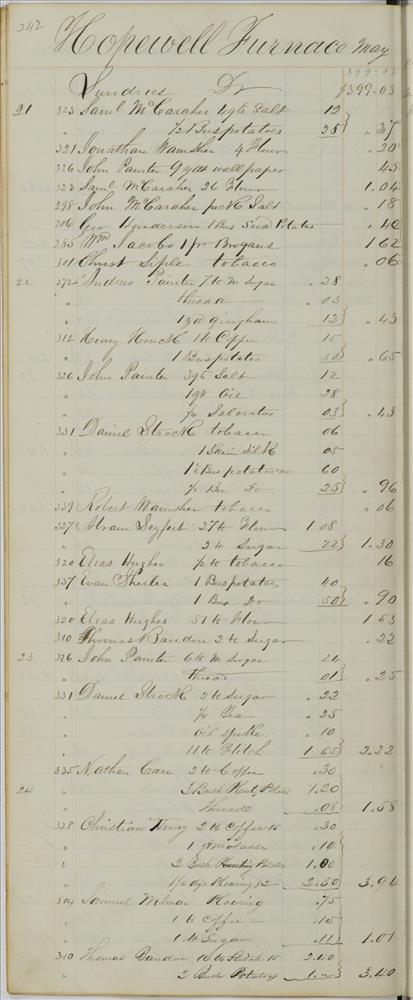 242
Hopewell Furnace May
399.03
Sundries Dr $399.03
21 323 Saml McCaraher 4 qts Salt 12
" 1/2 Bus potatoes 25 .37
321 Jonathan Wamsher 4 Flour .20
326 John Painter 9 yds wall paper 45
323 Saml McCaraher 26 Flour 1.04
298 John McCaraher Salt .18
306 Geo Henderson 1 Bus Seed Potatoes .40
285 Wm Jacobs 1 pr Brogans 1 62
301 Christ Siple tobacco .06
22 272 Andrew Painter 7 lb M Sugar .28
" thread .03
" 1 yd gingham 12 .43
312 Henry Houck 1 lb Coffee 15
" 1 Bus potatoes 50 .65
326 John Painter 3 qts Salt 12
" 1 qt Oil 28
" 1/4 Saloratus 03 .43
331 Daniel Strock tobacco 06
" 1 Skein Silk 05
" 1 1/2 Bus potatoes 60
" 1/2 Bus Do 25 .96
339 Robert Wamsher tobacco .06
327 Abram Seyfert 27 lb Flour 1 08
" 2 lb Sugar 22 1.30
320 Elias Hughes tobacco 16
337 Evan Sheeler 1 Bus potatoes 40
" 1 Bus Do 50 .90
320 Elias Hughes 51 lb Flour 1 53
310 Thomas Baudon 2 lb Sugar .22
23 326 John Painter 6 lb M Sugar 24
" thread 01 .25
331 Daniel Strock 2 lb Sugar .22
" 1/4 Tea .25
" oil spike .10
" 11 lb Flitch 1 65 2.22
335 Nathan Care 2 lb Coffee .30
24 " 3 Bush Potatoes 1.20
" Threads .08 1.58
328 Christian 2 lb Coffee 15 .30
" 1 qt molasses .14
" 2 Bush Planting Potatoes 1.00
" Plowing 2.50 3.94
304 Samuel Wilman Plowing .75
" 1 lb Coffee .15
" 1 lb Sugar .11 1.01
" 310 Thomas Baudon 16 lb Flitch 15 2.40
" 2 Bush Potatoes 3.40